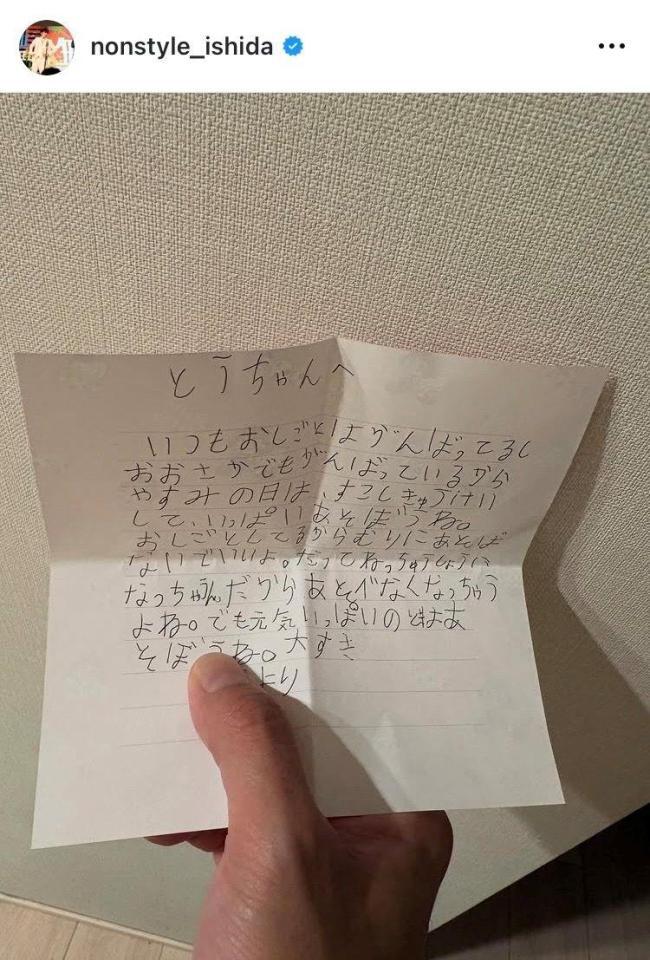 nonstyle_ishida
とうちゃんへ
いつもおしごとはがんばってるし
おおさかでもがんばっているから
やすみの日は、すこしきゅうけい
して、いっぱいあそぼうね。
おしごとしてるからむりにあそば
ないでいいよ。だってねっちゅうしょうに
なっちゃうんだからあそべなくなっちゃう
よね。でも元気いっぱいのときはあ
そぼうね。大すき
より